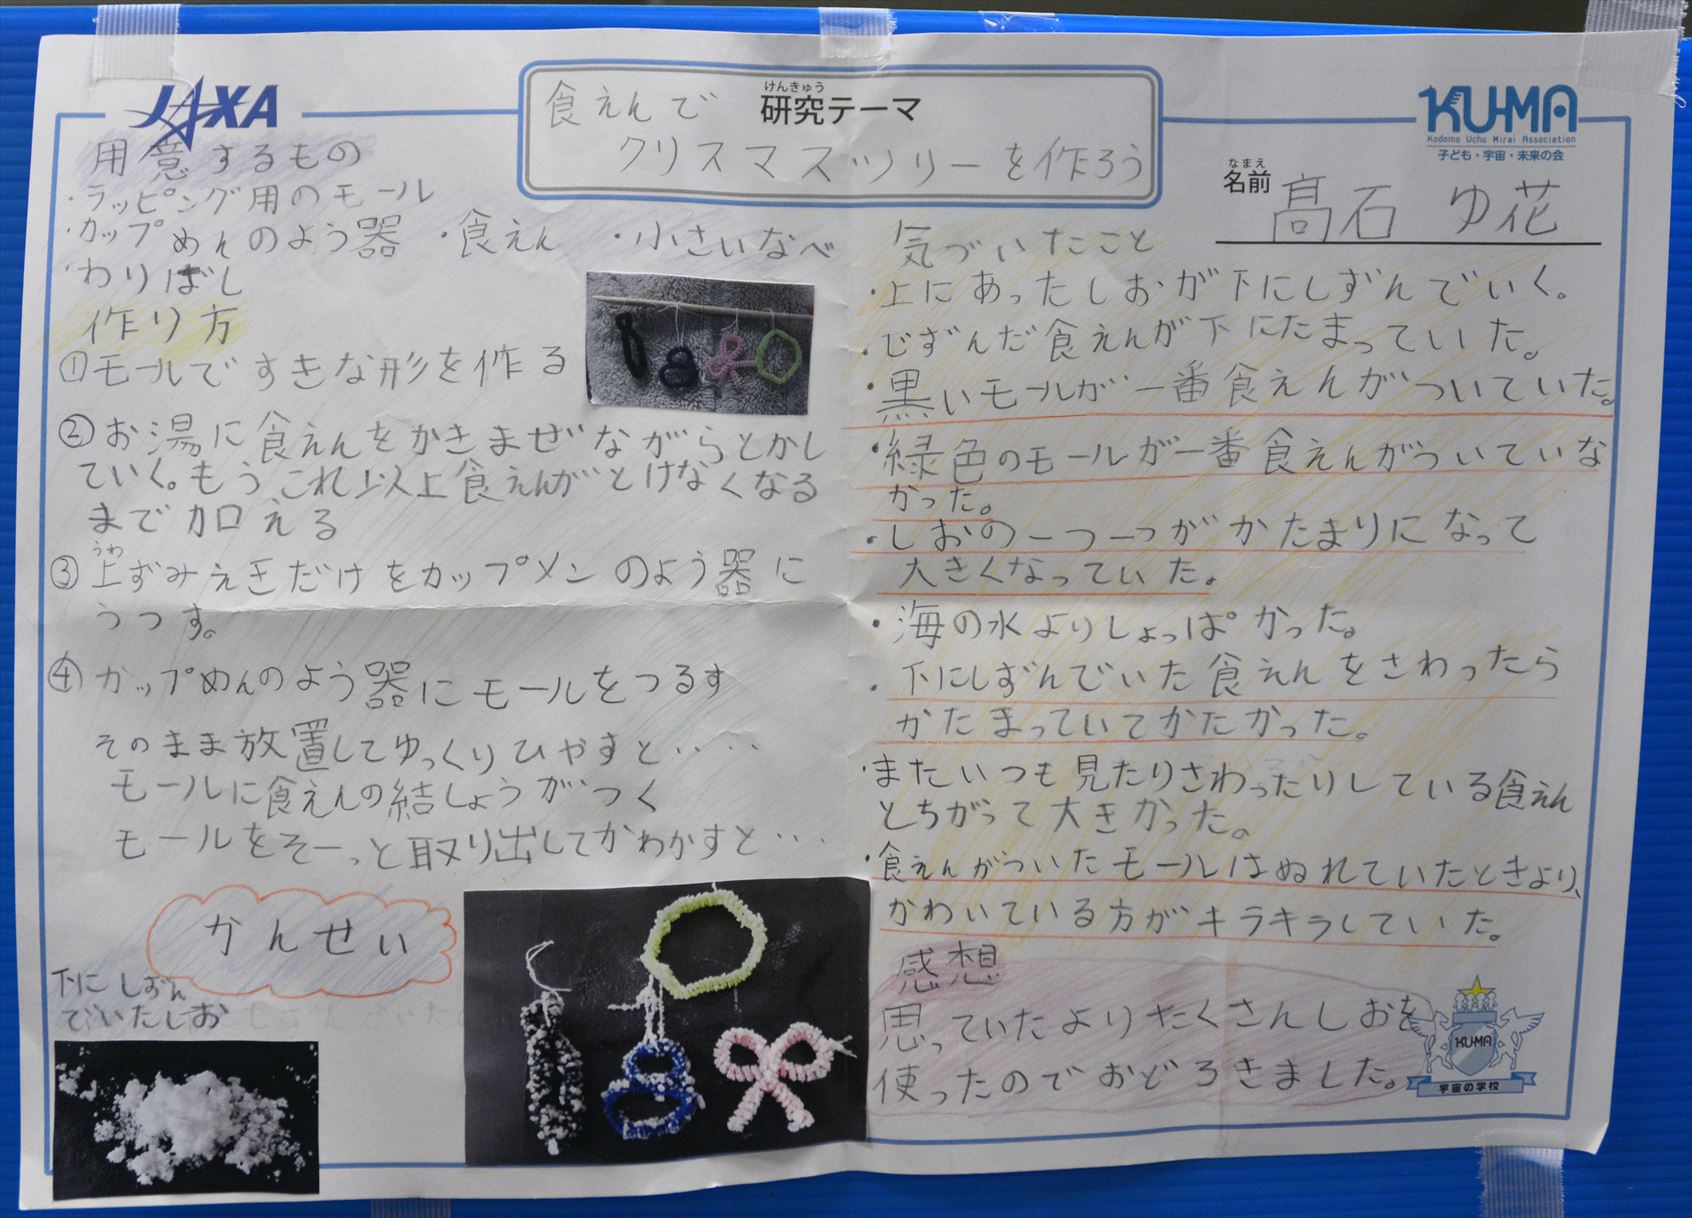 JAXA
けんきゅう
研究テーマ
食えんで
クリスマスツリーを作ろう
KU-MA
Kodomo Uchu Mirai Association
子ども・宇宙・未来の会
なまえ
名前
髙石 ゆ花
用意するもの
・ラッピング用のモール
・カップめんのよう器 ・食えん ・小さいなべ
・わりばし
作り方
①モールですきな形を作る
②お湯に食えんをかきまぜながらとかし
ていく。もうこれ以上食えんがとけなくなる
まで加える
うわ
③上ずみえきだけをカップメンのよう器に
うつす。
④カップめんのよう器にモールをつるす
そのまま放置してゆっくりひやすと‥‥
モールに食えんの結しょうがつく
モールをそーっと取り出してかわかすと‥‥
かんせい
下にしずん
でいたしお
気づいたこと
・上にあったしおが下にしずんでいく。
・しずんだ食えんが下にたまっていた。
・黒いモールが一番食えんがついていた。
・緑色のモールが一番食えんがついていな
かった。
・しおの一つ一つがかたまりになって
大きくなっていた。
・海の水よりしょっぱかった。
・下にしずんでいた食えんをさわったら
かたまっていてかたかった。
・またいつも見たりさわったりしている食えん
とちがって大きかった。
・食えんがついたモールはぬれていたときより、
かわいている方がキラキラしていた。
感想
思っていたよりたくさんしおを
使ったのでおどろきました。
KUMA
宇宙の学校